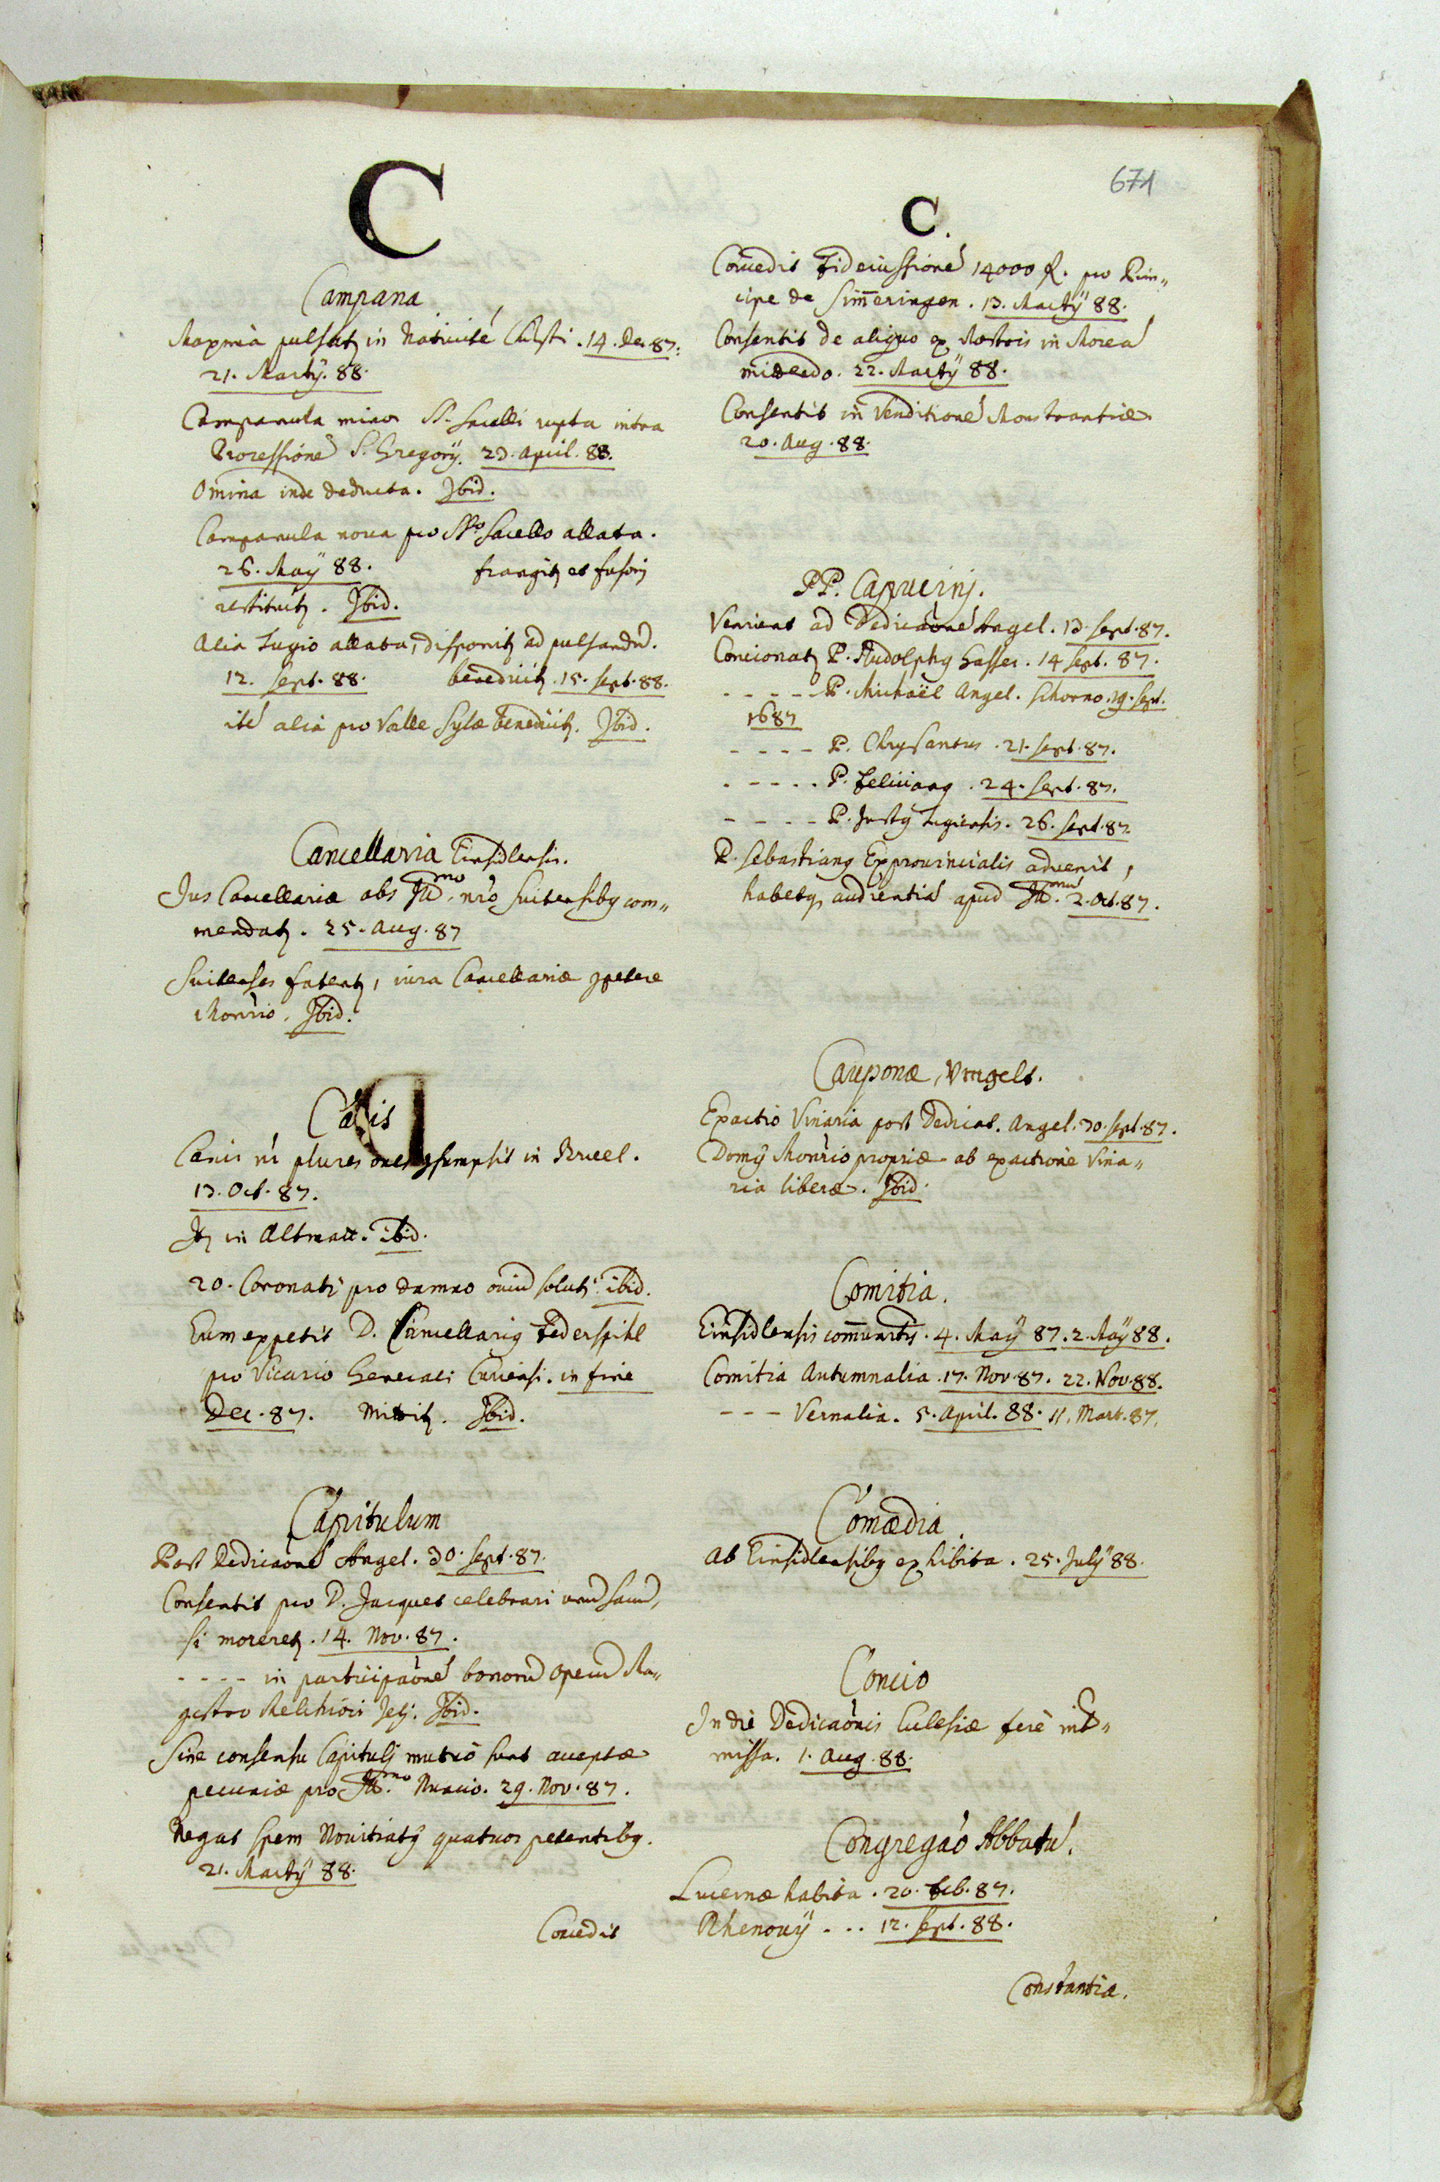 671
C
Campana
Maxima pulsatʒ in Nativité Christi . 14. Dec 87.
21. Martÿ. 88.
Campanula minor Sᵗⁱ. Sacelli rupta intra
Processioné S. Gregorÿ. 23. April. 88.
Omina inde deducta. Ibid.
Campanula nova pro Sᵗᵒ Sacello allata.
26. Maÿ 88. frangitʒ et fusori
restituitʒ. Ibid.
Alia Tugio allata, disponitʒ ad pulsandū.
12. Sept. 88. benedicitʒ. 15. Sept. 88.
ité alia pro Valle Sylæ benedicitʒ. Ibid.
Cancellaria Einsidlensis.
Jus Cancellariæ abs Illᵐᵒ. nr̄o Suitensibꝰ com„
mendatʒ. 25. Aug. 87
Suitenses fatentʒ, iura Cancellariæ ꝯpetere
Monrio. Ibid.
Canis
Canis plures oves ꝯsumpsit in Bruel.
13. Oct. 87.
Itʒ in Altmatt. ibid.
20. Coronati pro damno oviū soluti. ibid.
Eum expetit D. Cancellariꝰ Federspihl
pro Vicario Generali Curiensi. in fine
Dec. 87. Mittitʒ. Ibid.
Capitulum
Post Dedicaōné Angel. 30. Sept. 87.
Consentit pro D. Jacquet celebrari unū sacrū,
si moreretʒ. 14. Nov. 87.
- - - - in participaōné bonorū operū Ma„
gistro Melchiori Ibid.
Sine consensu Capituli mutuò sunt acceptæ
pecuniæ pro Illᵐᵒ Nuncio. 29. Nov. 87.
Negat spem Novitiatꝰ quatuor petentibꝰ.
21. Martÿ 88.
Concedit
C.
Concedit Fideiussioné 14000 fl. pro Prin„
cipe de Sim̄eringen. 13. Martÿ 88.
Consentit de aliquo ex Nostris in Moreā
mittendo. 22. Martÿ 88.
Consentit in Venditioné Monstrantiæ
20. Aug. 88.
PP. Capucini.
Veniunt ad Dedicaōné Angel. 13. Sept. 87.
Concionatʒ P. Rudolphꝰ Gasser. 14 Sept. 87.
- - - - P. Michaël Angel. Schorno. 19. Sept.
1687
- - - - P. Chrysantus. 21. Sept. 87.
- - - - - P. Felicianꝰ. 24. Sept. 87.
- - - - P. Justꝰ Tugiensis. 26. Sept. 87.
P. Sebastianꝰ Exprovincialis advenit,
habetqʒ audientiā apud Illᵐᵘᵐ. 2. Oct. 87.
Cauponæ, Vmgelt.
Exactio Vinaria post Dedicat. Angel. 30. Sept. 87.
Domꝰ Monrio propriæ ab exactione vina„
ria liberæ. Ibid.
Comitia.
Einsidlensis com̄unitatis. 4. Maÿ 87. 2. Maÿ 88.
Comitia Autumnalia. 17. Nov. 87. 22. Nov. 88.
- - - Vernalia. 5. April. 88. 11. Mart. 87.
Comœdia.
Ab Einsidlensibꝰ exhibita. 25. Julÿ 88.
Concio
In die Dedicaōnis Ecclesiæ ferè inter„
missa. 1. Aug. 88.
Congregaō Abbatū.
Lucernæ habita. 20. Feb. 87.
Rhenovÿ - - - 12. Sept. 88.
Constantia.